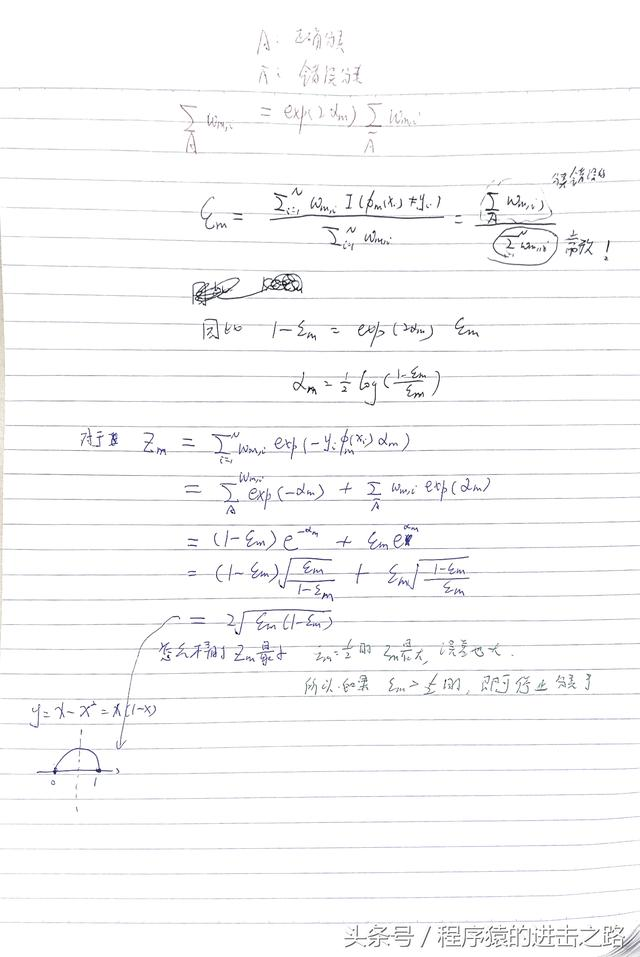 A: 正确分类
Ā: 错误分类
∑_A w_{m,i} = exp(2α_m) ∑_Ā w_{m,i}
分类错误的
ε_m = ∑_{i=1}^N w_{m,i} I(φ_m(x_i) ≠ y_i) / ∑_{i=1}^N w_{m,i} = ∑_Ā w_{m,i} / ∑_{i=1}^N w_{m,i} 常数!
因此 1-ε_m = exp(2α_m) ε_m
α_m = 1/2 log((1-ε_m)/ε_m)
对于 Z_m = ∑_{i=1}^N w_{m,i} exp(-y_i φ_m(x_i) α_m)
= ∑_A w_{m,i} exp(-α_m) + ∑_Ā w_{m,i} exp(α_m)
= (1-ε_m) e^{-α_m} + ε_m e^{α_m}
= (1-ε_m) √(ε_m/(1-ε_m)) + ε_m √((1-ε_m)/ε_m)
= 2√(ε_m(1-ε_m))
怎么样时 Z_m 最 ε_m = 1/2 时 Z_m 最大, 误差也大.
所以如果 ε_m > 1/2 时, 即可停止分类了
y = x - x² = x(1-x)
0 1
头条号 / 程序猿的进击之路